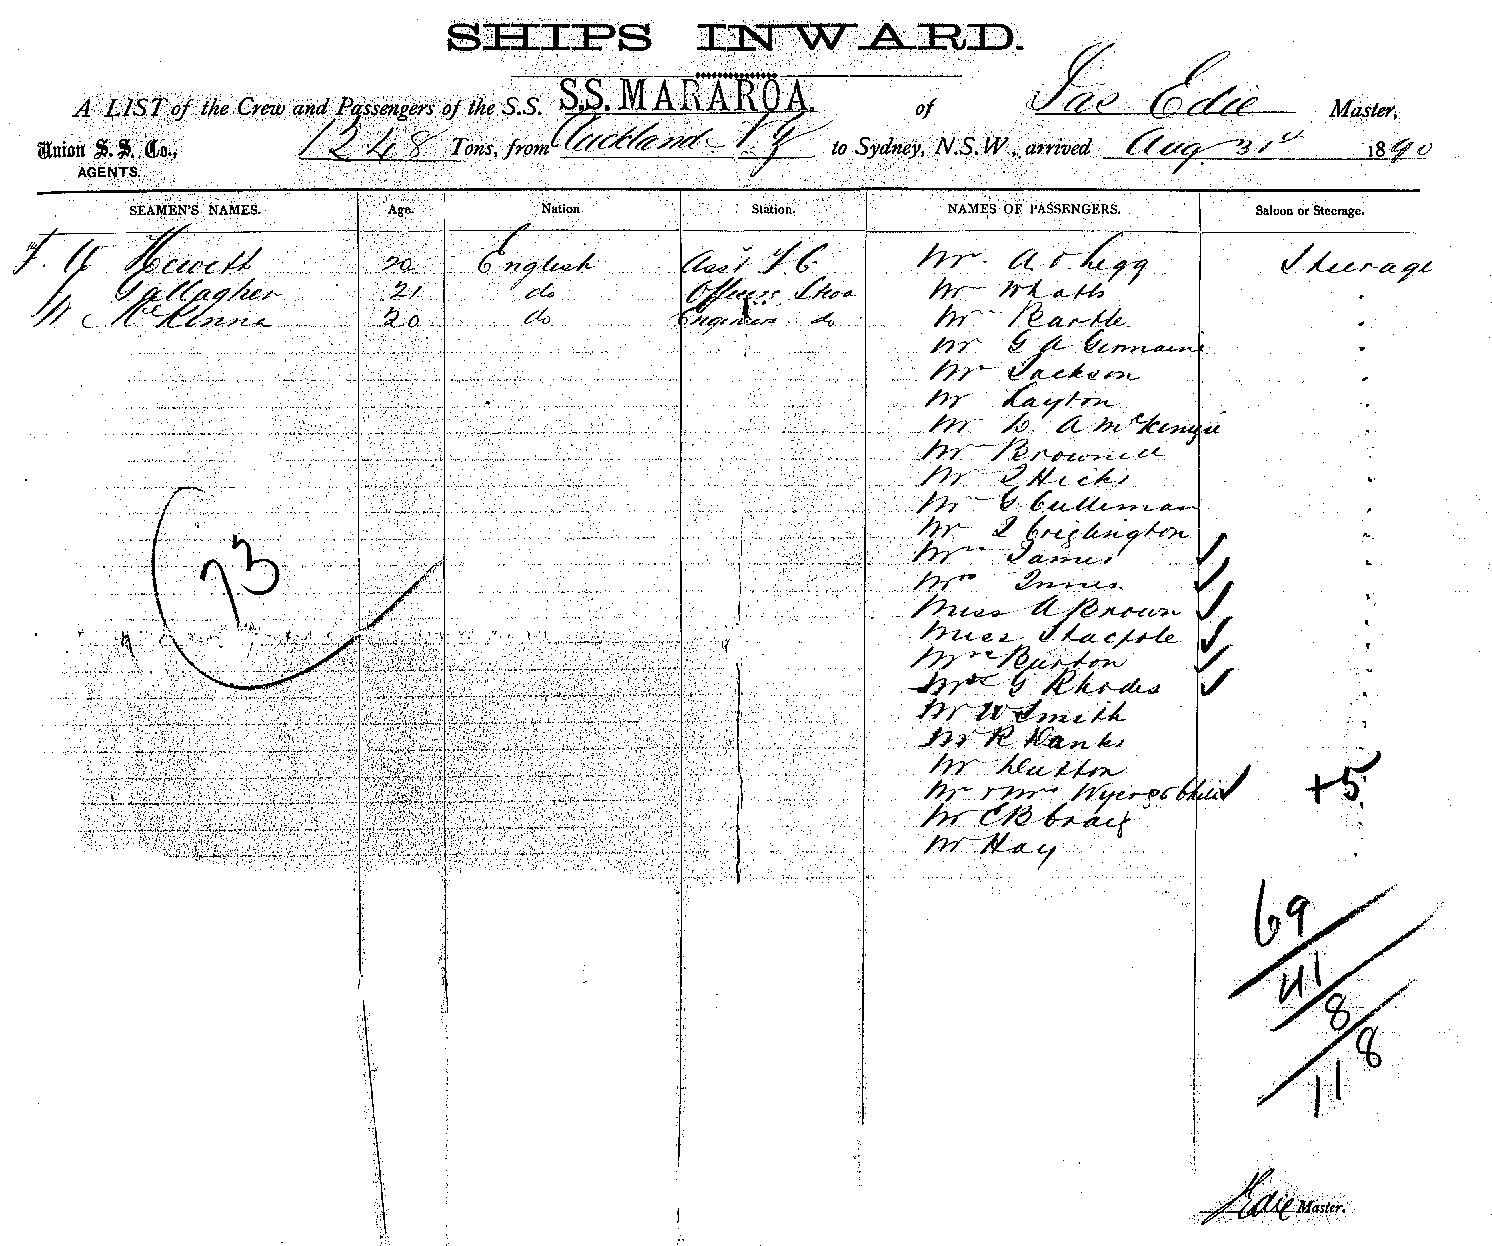 SHIPS INWARD.
A LIST of the Crew and Passengers of the S.S. S.S. MARAROA. of Jas Edie Master,
Union S. S. Co., 1248 Tons, from Auckland N Z to Sydney, N.S.W., arrived Aug 31st 1890
AGENTS.
SEAMEN'S NAMES. Age. Nation Station. NAMES OF PASSENGERS. Saloon or Steerage.
Hewett 20 English Asst Mr A Legg Steerage
Gallagher 21 do Officers Mr Whatts "
McKenna 20 do Engineers do Mr Bartle "
Mr G A Germaine "
Mr Jackson "
Mr Layton "
Mr A McKenzie "
Mr Brownell "
Mr Hicks "
Mr G Culleman "
Mr Creghington "
Mrs James "
Mrs Innes "
Miss A Brown "
Miss Stacpole "
73
Mrs Burton "
Mrs G Rhodes "
Mr W Smith "
Mr R Hanks "
Mr Dutton "
Mr & Mrs Wyer & 6 Child +5
Mr C B Craig
Mr Hay "
69
41
8
118
J Edie Master.